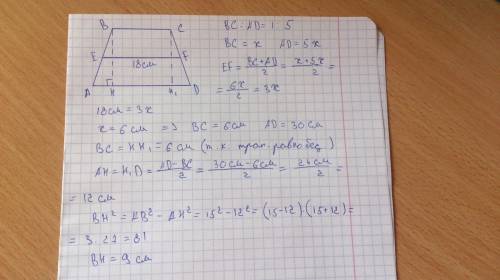 B C
E 18см F
A H H₁ D
BC : AD = 1 : 5
BC = x AD = 5x
EF = (BC+AD)/2 = (x+5x)/2 =
= 6x/2 = 3x
18см = 3x
x = 6см => BC = 6см AD = 30см
BC = HH₁ = 6см (т.к. трап. равнобед.)
AH = H₁D = (AD-BC)/2 = (30см-6см)/2 = 24см/2 =
= 12см
BH² = AB² - AH² = 15² - 12² = (15-12)·(15+12) =
= 3·27 = 81
BH = 9см